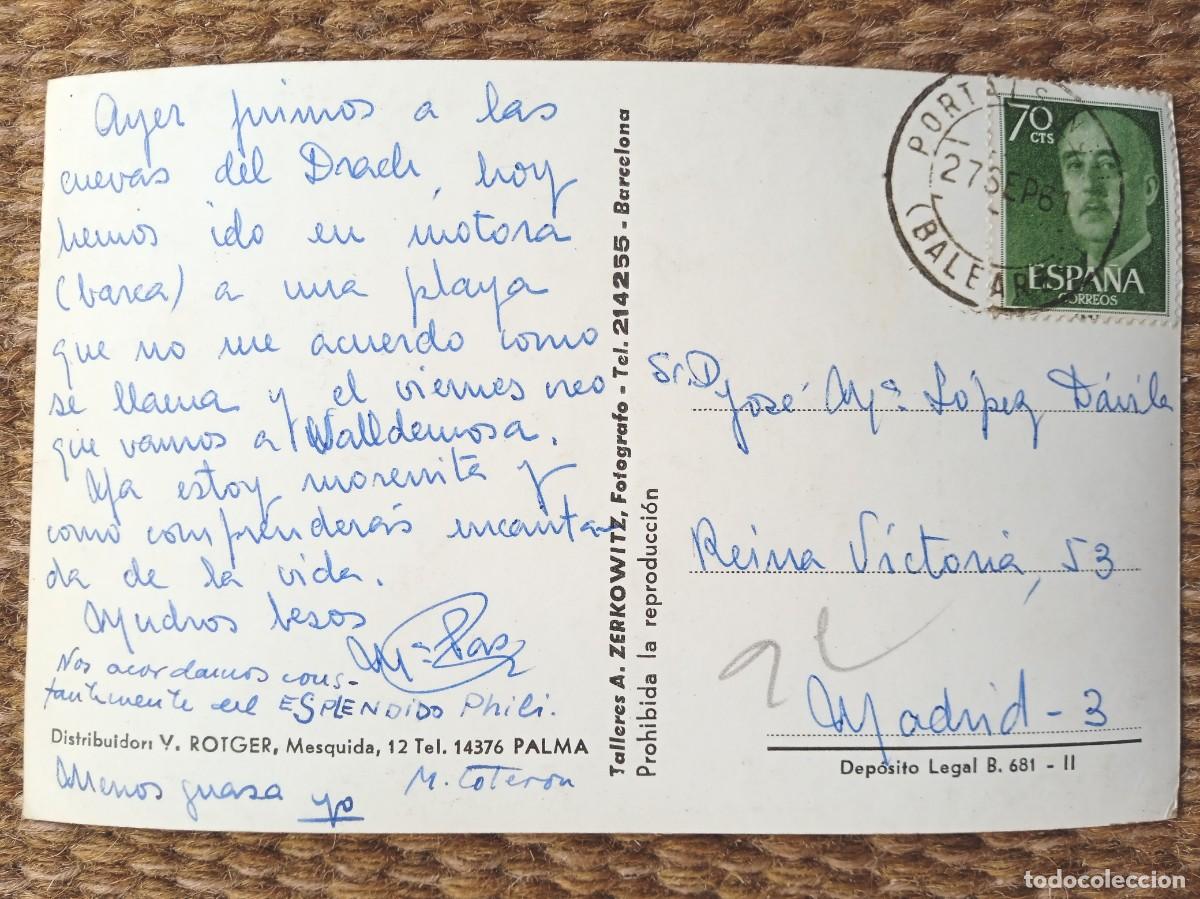 Ayer fuimos a las
cuevas del Drach, hoy
hemos ido en motora
(barca) a una playa
que no me acuerdo como
se llama y el viernes creo
que vamos a Valldemosa.
Ya estoy morenita y
como comprenderás encanta-
da de la vida.
Muchos besos
Mª Paz
Nos acordamos cons-
tantemente del ESPLENDIDO Phili.
M. Coterón
Distribuidor: V. ROTGER, Mesquida, 12 Tel. 14376 PALMA
Menos guasa yo
Talleres A. ZERKOWITZ, Fotografo - Tel. 214255 - Barcelona
Prohibida la reproducción
PORTALS
27 SEP 61
(BALEAR
70
CTS
ESPAÑA
CORREOS
Sr. D. José Mª López Dávila
Reina Victoria, 53
Madrid - 3
Depósito Legal B. 681 - II
todocoleccion